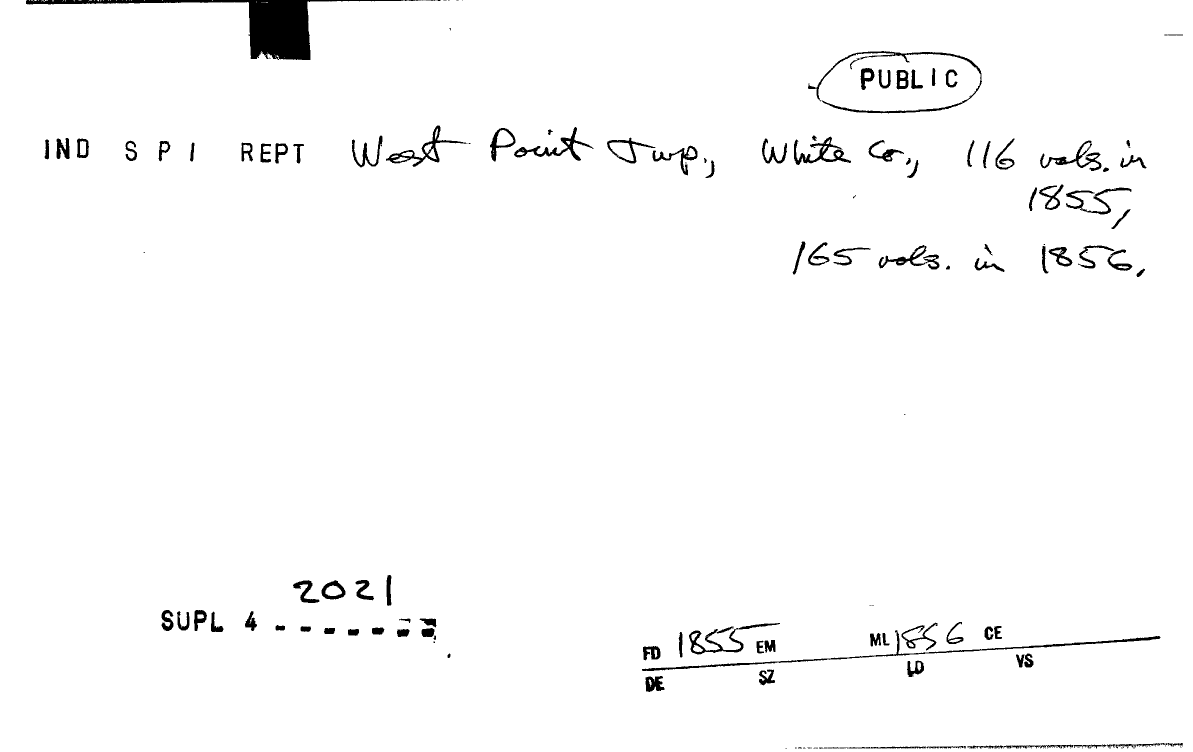 PUBLIC
IND S P I REPT West Point Twp., White Co., 116 vols. in
1855,
165 vols. in 1856.
2021
SUPL 4
FD 1855 EM ML 1856 CE
DE SZ LD VS